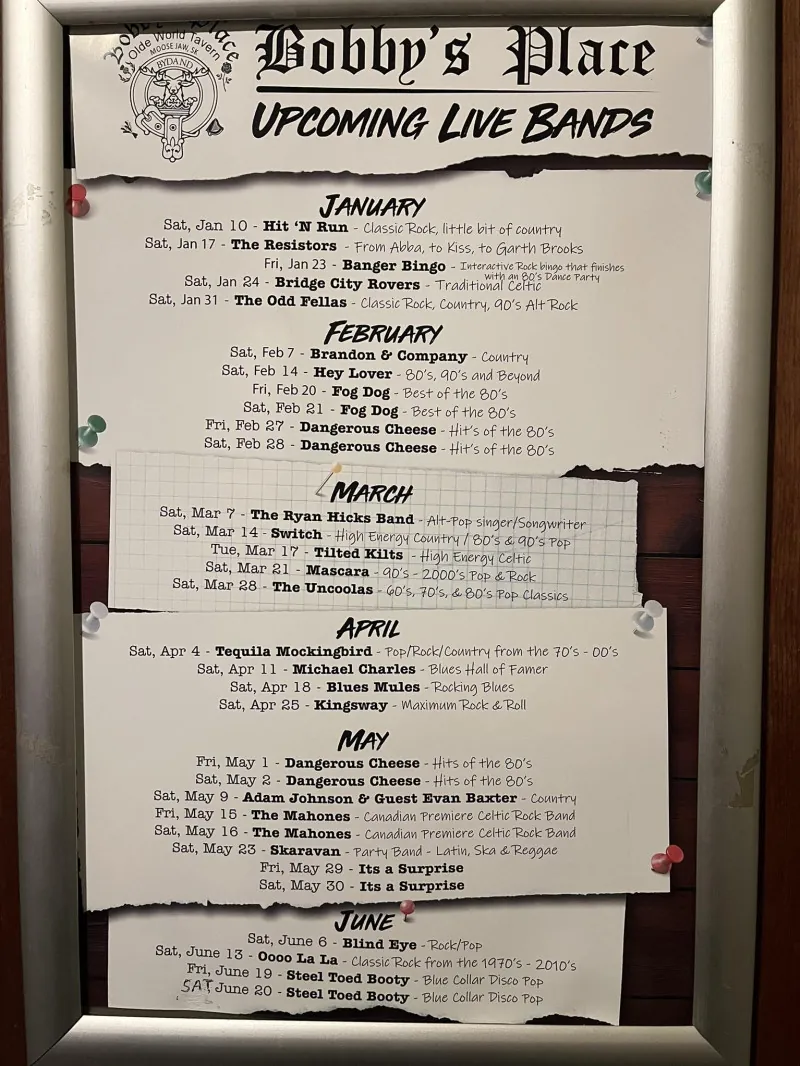 Bobby's Place
Olde World Tavern
MOOSE JAW, SK
BYDAND
Bobby's Place
UPCOMING LIVE BANDS
JANUARY
Sat, Jan 10 - Hit 'N Run - Classic Rock, little bit of country
Sat, Jan 17 - The Resistors - From Abba, to Kiss, to Garth Brooks
Fri, Jan 23 - Banger Bingo - Interactive Rock bingo that finishes
with an 80's Dance Party
Sat, Jan 24 - Bridge City Rovers - Traditional Celtic
Sat, Jan 31 - The Odd Fellas - Classic Rock, Country, 90's Alt Rock
FEBRUARY
Sat, Feb 7 - Brandon & Company - Country
Sat, Feb 14 - Hey Lover - 80's, 90's and Beyond
Fri, Feb 20 - Fog Dog - Best of the 80's
Sat, Feb 21 - Fog Dog - Best of the 80's
Fri, Feb 27 - Dangerous Cheese - Hit's of the 80's
Sat, Feb 28 - Dangerous Cheese - Hit's of the 80's
MARCH
Sat, Mar 7 - The Ryan Hicks Band - Alt-Pop singer/Songwriter
Sat, Mar 14 - Switch - High Energy Country / 80's & 90's Pop
Tue, Mar 17 - Tilted Kilts - High Energy Celtic
Sat, Mar 21 - Mascara - 90's - 2000's Pop & Rock
Sat, Mar 28 - The Uncoolas - 60's, 70's, & 80's Pop Classics
APRIL
Sat, Apr 4 - Tequila Mockingbird - Pop/Rock/Country from the 70's - 00's
Sat, Apr 11 - Michael Charles - Blues Hall of Famer
Sat, Apr 18 - Blues Mules - Rocking Blues
Sat, Apr 25 - Kingsway - Maximum Rock & Roll
MAY
Fri, May 1 - Dangerous Cheese - Hits of the 80's
Sat, May 2 - Dangerous Cheese - Hits of the 80's
Sat, May 9 - Adam Johnson & Guest Evan Baxter - Country
Fri, May 15 - The Mahones - Canadian Premiere Celtic Rock Band
Sat, May 16 - The Mahones - Canadian Premiere Celtic Rock Band
Sat, May 23 - Skaravan - Party Band - Latin, Ska & Reggae
Fri, May 29 - Its a Surprise
Sat, May 30 - Its a Surprise
JUNE
Sat, June 6 - Blind Eye - Rock/Pop
Sat, June 13 - Oooo La La - Classic Rock from the 1970's - 2010's
Fri, June 19 - Steel Toed Booty - Blue Collar Disco Pop
SAT June 20 - Steel Toed Booty - Blue Collar Disco Pop